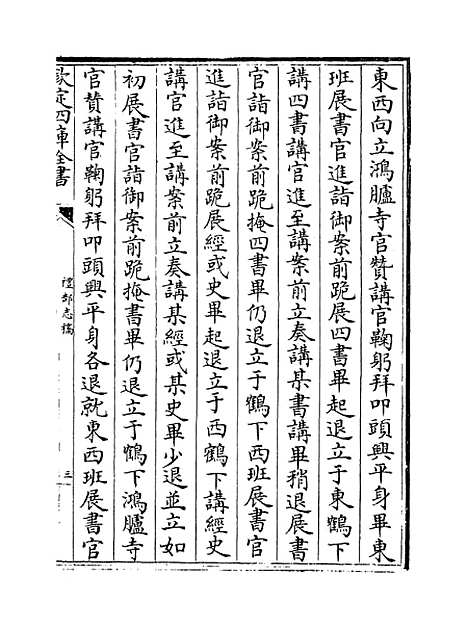 東西向立鴻臚寺官贊講官鞠躬拜叩頭興平身畢東
班展書官進詣御案前跪展四書畢起退立于東鶴下
講四書講官進至講案前立奏講某書講畢稍退展書
官詣御案前跪掩四書畢仍退立于鶴下西班展書官
進詣御案前跪展經或史畢起退立于西鶴下講經史
講官進至講案前立奏講某經或某史畢少退並立如
初展書官詣御案前跪掩書畢仍退立于鶴下鴻臚寺
官贊講官鞠躬拜叩頭興平身各退就東西班展書官
欽定四庫全書
禮部志稿